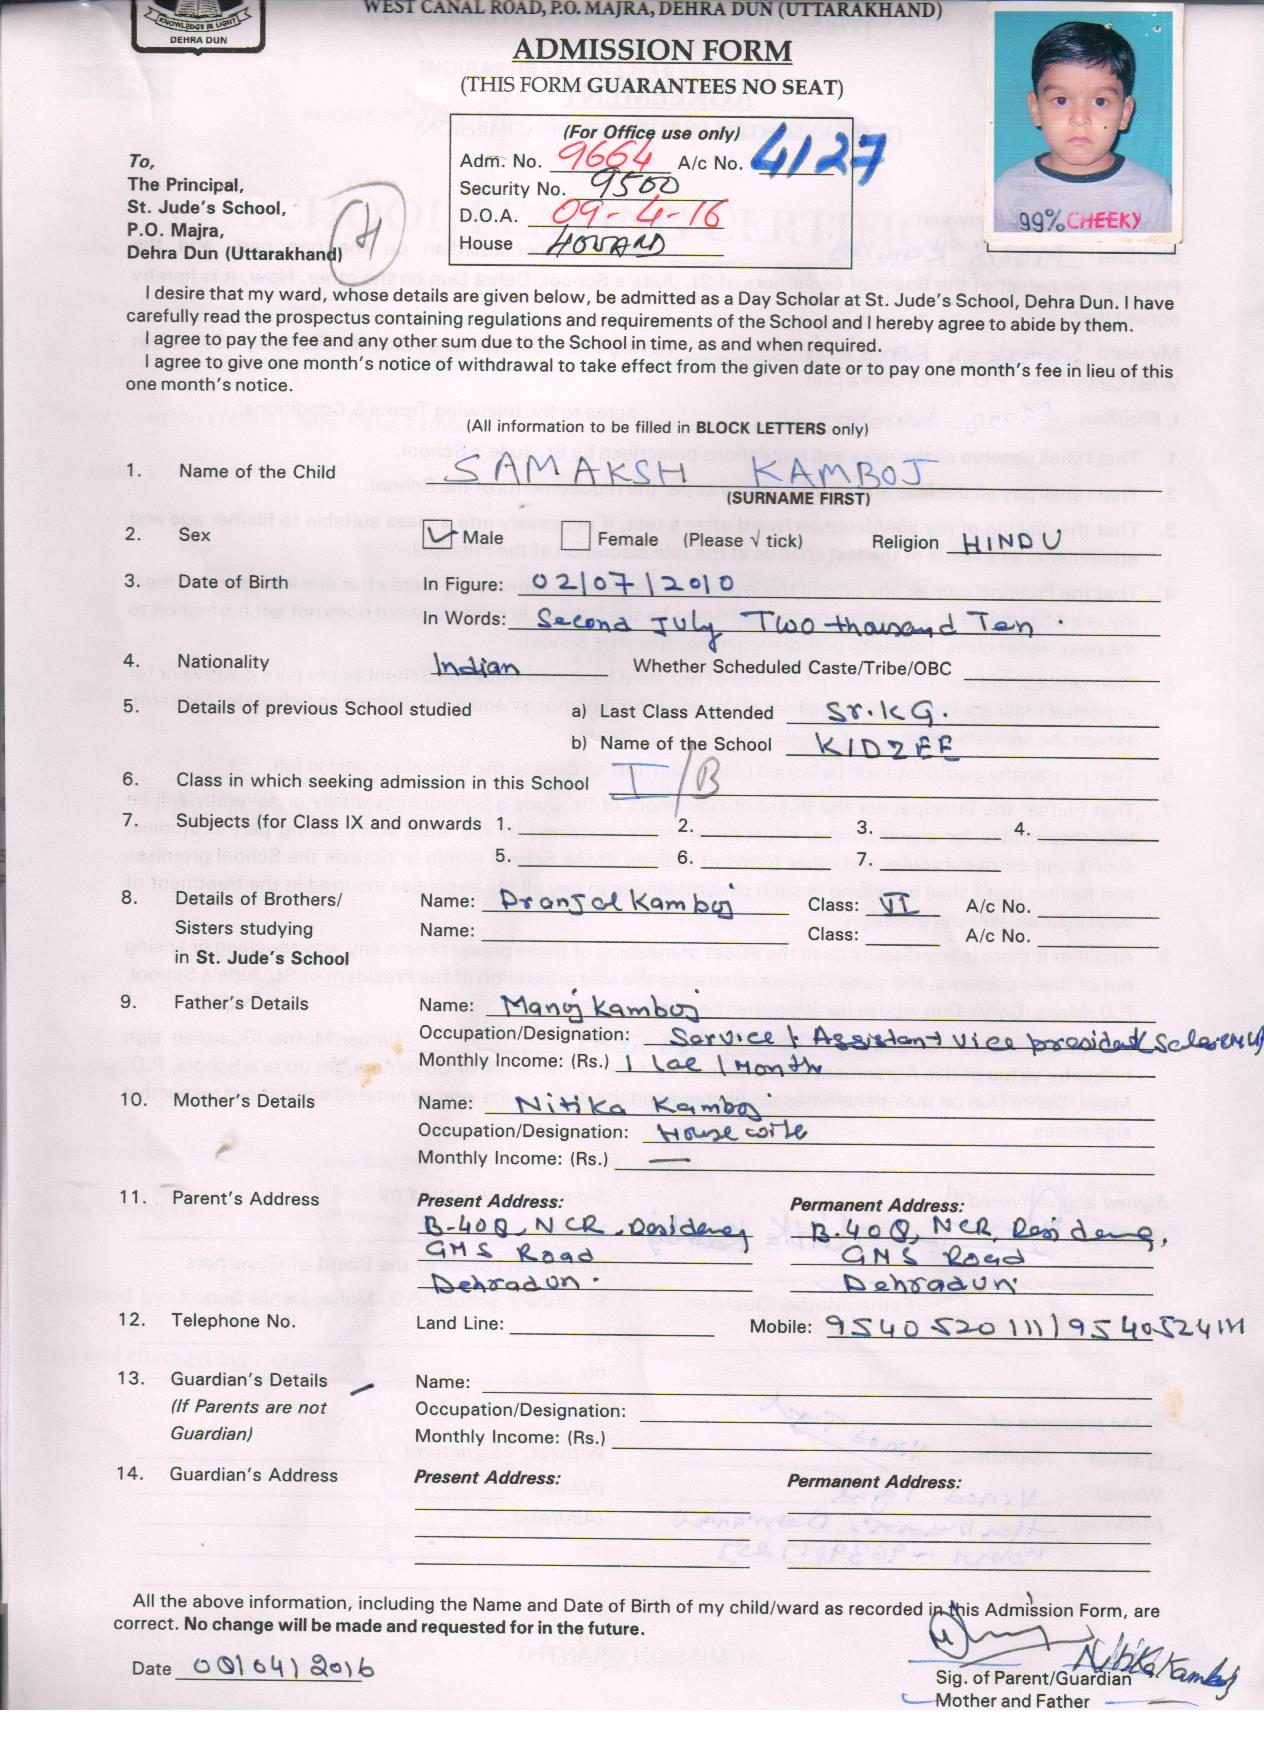 KNOWLEDGE IS LIGHT
DEHRA DUN
WEST CANAL ROAD, P.O. MAJRA, DEHRA DUN (UTTARAKHAND)
ADMISSION FORM
(THIS FORM GUARANTEES NO SEAT)
(For Office use only)
Adm. No. 9664 A/c No. 4127
Security No. 9500
D.O.A. 09-4-16
House HOWARD
To,
The Principal,
St. Jude's School,
P.O. Majra,
Dehra Dun (Uttarakhand)
99% CHEEKY
I desire that my ward, whose details are given below, be admitted as a Day Scholar at St. Jude's School, Dehra Dun. I have
carefully read the prospectus containing regulations and requirements of the School and I hereby agree to abide by them.
I agree to pay the fee and any other sum due to the School in time, as and when required.
I agree to give one month's notice of withdrawal to take effect from the given date or to pay one month's fee in lieu of this
one month's notice.
(All information to be filled in BLOCK LETTERS only)
1. Name of the Child SAMAKSH KAMBOJ
(SURNAME FIRST)
2. Sex Male Female (Please √ tick) Religion HINDU
3. Date of Birth In Figure: 02/07/2010
In Words: Second July Two thousand Ten.
4. Nationality Indian Whether Scheduled Caste/Tribe/OBC
5. Details of previous School studied a) Last Class Attended Sr.KG.
b) Name of the School KIDZEE
6. Class in which seeking admission in this School I/B
7. Subjects (for Class IX and onwards 1. 2. 3. 4.
5. 6. 7.
8. Details of Brothers/ Name: Pranjal Kamboj Class: VI A/c No.
Sisters studying Name: Class: A/c No.
in St. Jude's School
9. Father's Details Name: Manoj Kamboj
Occupation/Designation: Service / Assistant Vice president
Monthly Income: (Rs.) 1 lac / Month
10. Mother's Details Name: Nitika Kamboj
Occupation/Designation: House wife
Monthly Income: (Rs.) —
11. Parent's Address Present Address: Permanent Address:
B-408, NCR, Residency B-408, NCR, Residency,
GMS Road GMS Road
Dehradun. Dehradun.
12. Telephone No. Land Line: Mobile: 9540520111/9540524111
13. Guardian's Details — Name:
(If Parents are not Occupation/Designation:
Guardian) Monthly Income: (Rs.)
14. Guardian's Address Present Address: Permanent Address:
All the above information, including the Name and Date of Birth of my child/ward as recorded in this Admission Form, are
correct. No change will be made and requested for in the future.
Date 09/04/2016 Nitika Kamboj
Sig. of Parent/Guardian
Mother and Father